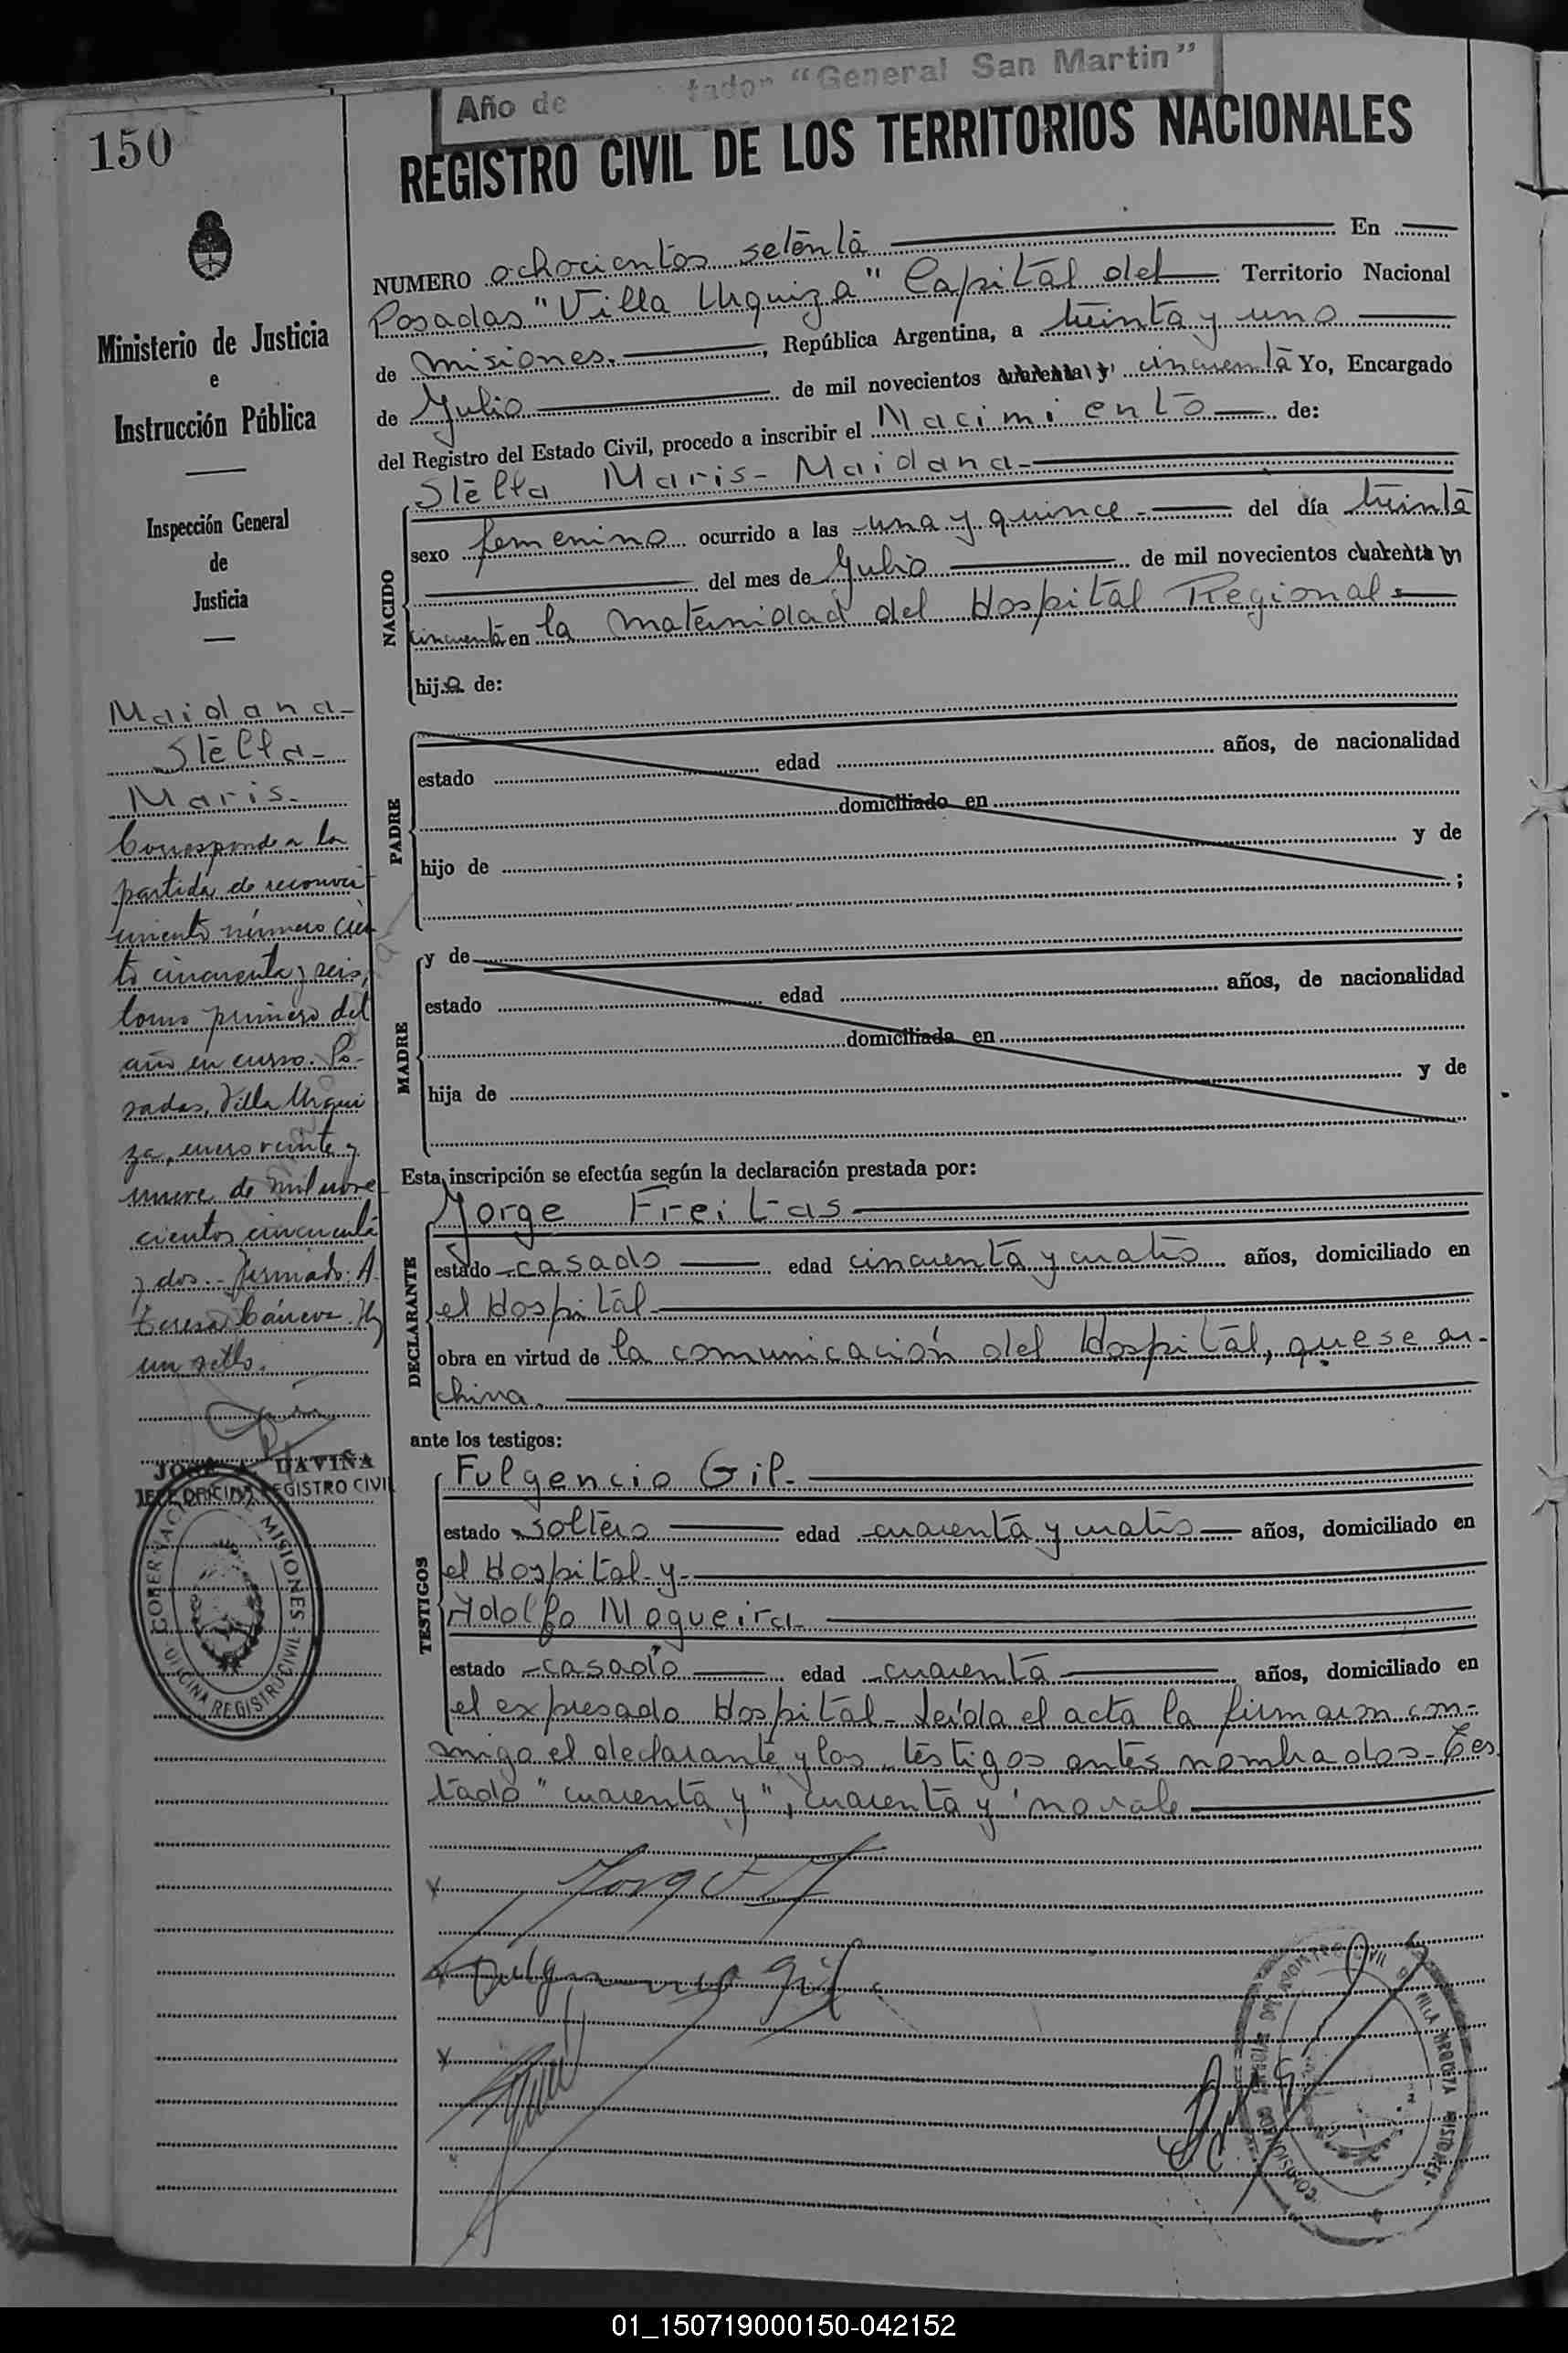 Año de tador "General San Martin"
150
REGISTRO CIVIL DE LOS TERRITORIOS NACIONALES
Ministerio de Justicia
e
Instrucción Pública
Inspección General
de
Justicia
NUMERO ochocientos setenta En
Posadas "Villa Urquiza" Capital del Territorio Nacional
de Misiones. , República Argentina, a treinta y uno
de Julio de mil novecientos cuarenta y cincuenta Yo, Encargado
del Registro del Estado Civil, procedo a inscribir el Nacimiento de:
NACIDO
Stella Maris - Maidana -
sexo femenino ocurrido a las una y quince - del día treinta
del mes de Julio de mil novecientos cuarenta y
cincuenta en la Maternidad del Hospital Regional
hija de:
PADRE
estado edad años, de nacionalidad
domiciliado en
hijo de y de
;
MADRE
y de
estado edad años, de nacionalidad
domiciliada en
hija de y de
Esta inscripción se efectúa según la declaración prestada por:
DECLARANTE
Jorge Freitas
estado casado edad cincuenta y cuatro años, domiciliado en
el Hospital
obra en virtud de la comunicación del Hospital, que se ar-
chiva.
ante los testigos:
TESTIGOS
Fulgencio Gil -
estado soltero edad cuarenta y cuatro años, domiciliado en
el Hospital - y -
Adolfo Nogueira
estado casado edad cuarenta años, domiciliado en
el expresado Hospital - Leída el acta la firmaron con-
migo el declarante y los testigos antes nombrados - Tes
tado "cuarenta y", cuarenta y no vale
Maidana -
Stella -
Maris -
Corresponde a la
partida de reconoci
miento número cien
to cincuenta y seis,
tomo primero del
año en curso. Po-
sadas, Villa Urqui
za, enero veinte y
nueve de mil nove
cientos cincuenta
y dos. - Firmado: A.
Teresa Hy
un sello.
JOSE A. DAVIÑA
JEFE OFICINA REGISTRO CIVIL
GOBERNACION MISIONES
OFICINA REGISTRO CIVIL
Jorge F
Fulgencio Gil
VILLA URQUIZA MISIONES
01_150719000150-042152